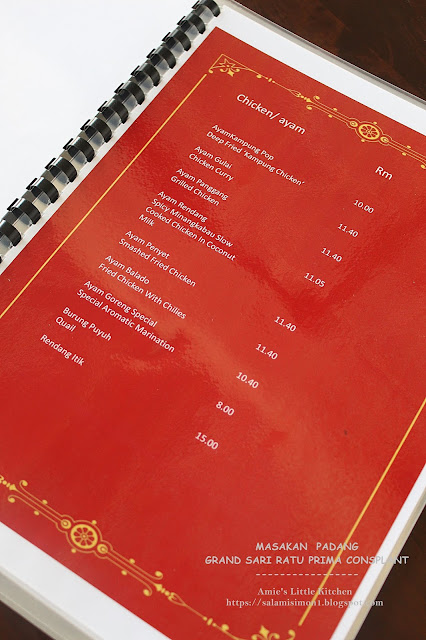 Chicken/ ayam
Rm
AyamKampung Pop
Deep Fried 'Kampung Chicken'
10.00
Ayam Gulai
Chicken Curry
11.40
Ayam Panggang
Grilled Chicken
11.40
Ayam Rendang
Spicy Minangkabau Slow
Cooked Chicken In Coconut
Milk
11.05
Ayam Penyet
Smashed Fried Chicken
11.40
Ayam Balado
Fried Chicken With Chilies
11.40
Ayam Goreng Special
Special Aromatic Marination
10.40
Burung Puyuh
Quail
8.00
Rendang Itik
15.00
MASAKAN PADANG
GRAND SARI RATU PRIMA CONSPLANT
--------------------
Amie's Little Kitchen
https://salamisimon1.blogspot.com